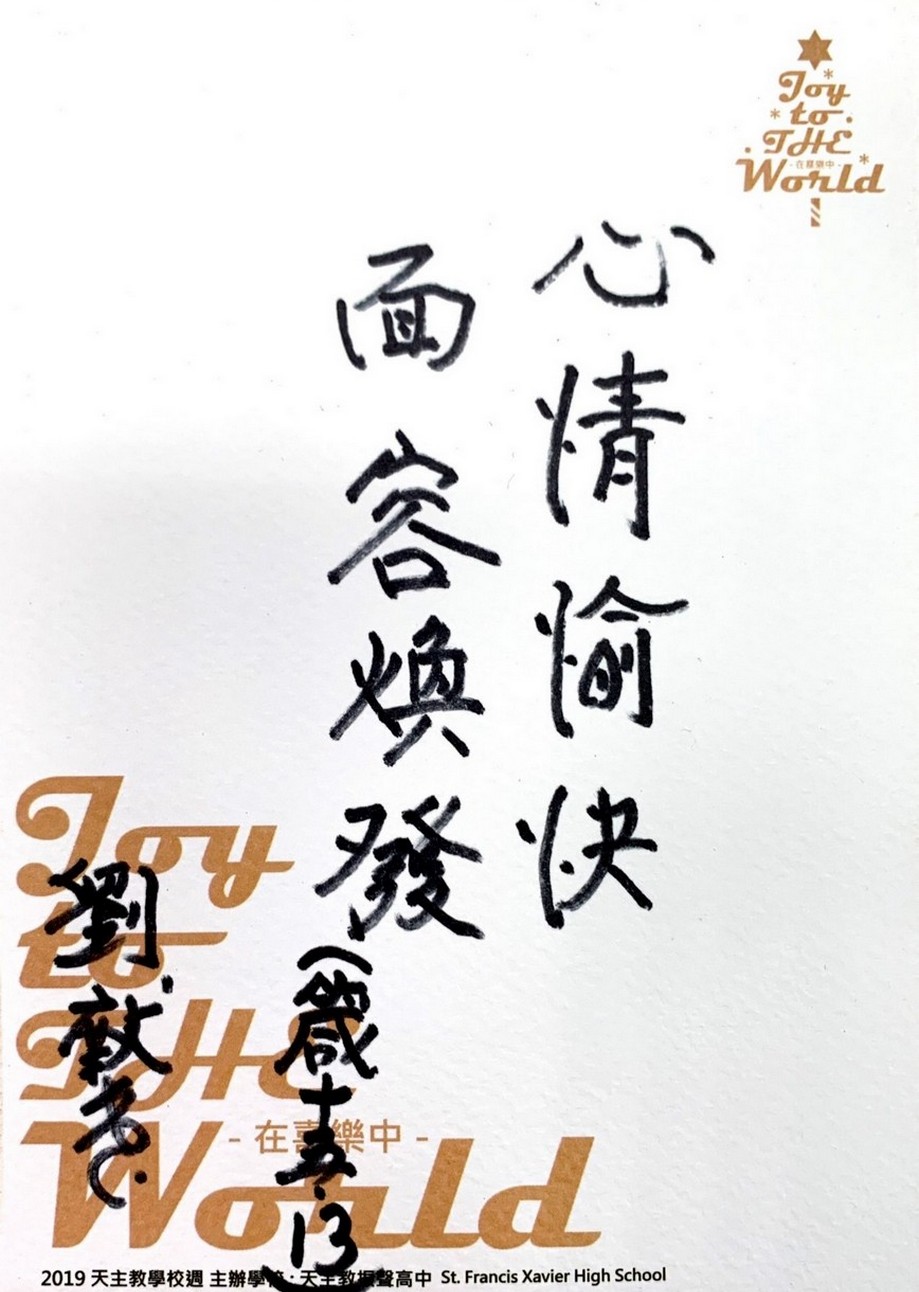 Joy
to
THE
- 在喜樂中 -
World
心情愉快
面容煥發
(箴十五.13)
劉獻堯
Joy
to
THE
- 在喜樂中 -
World
2019 天主教學校週 主辦學校：天主教振聲高中 St. Francis Xavier High School